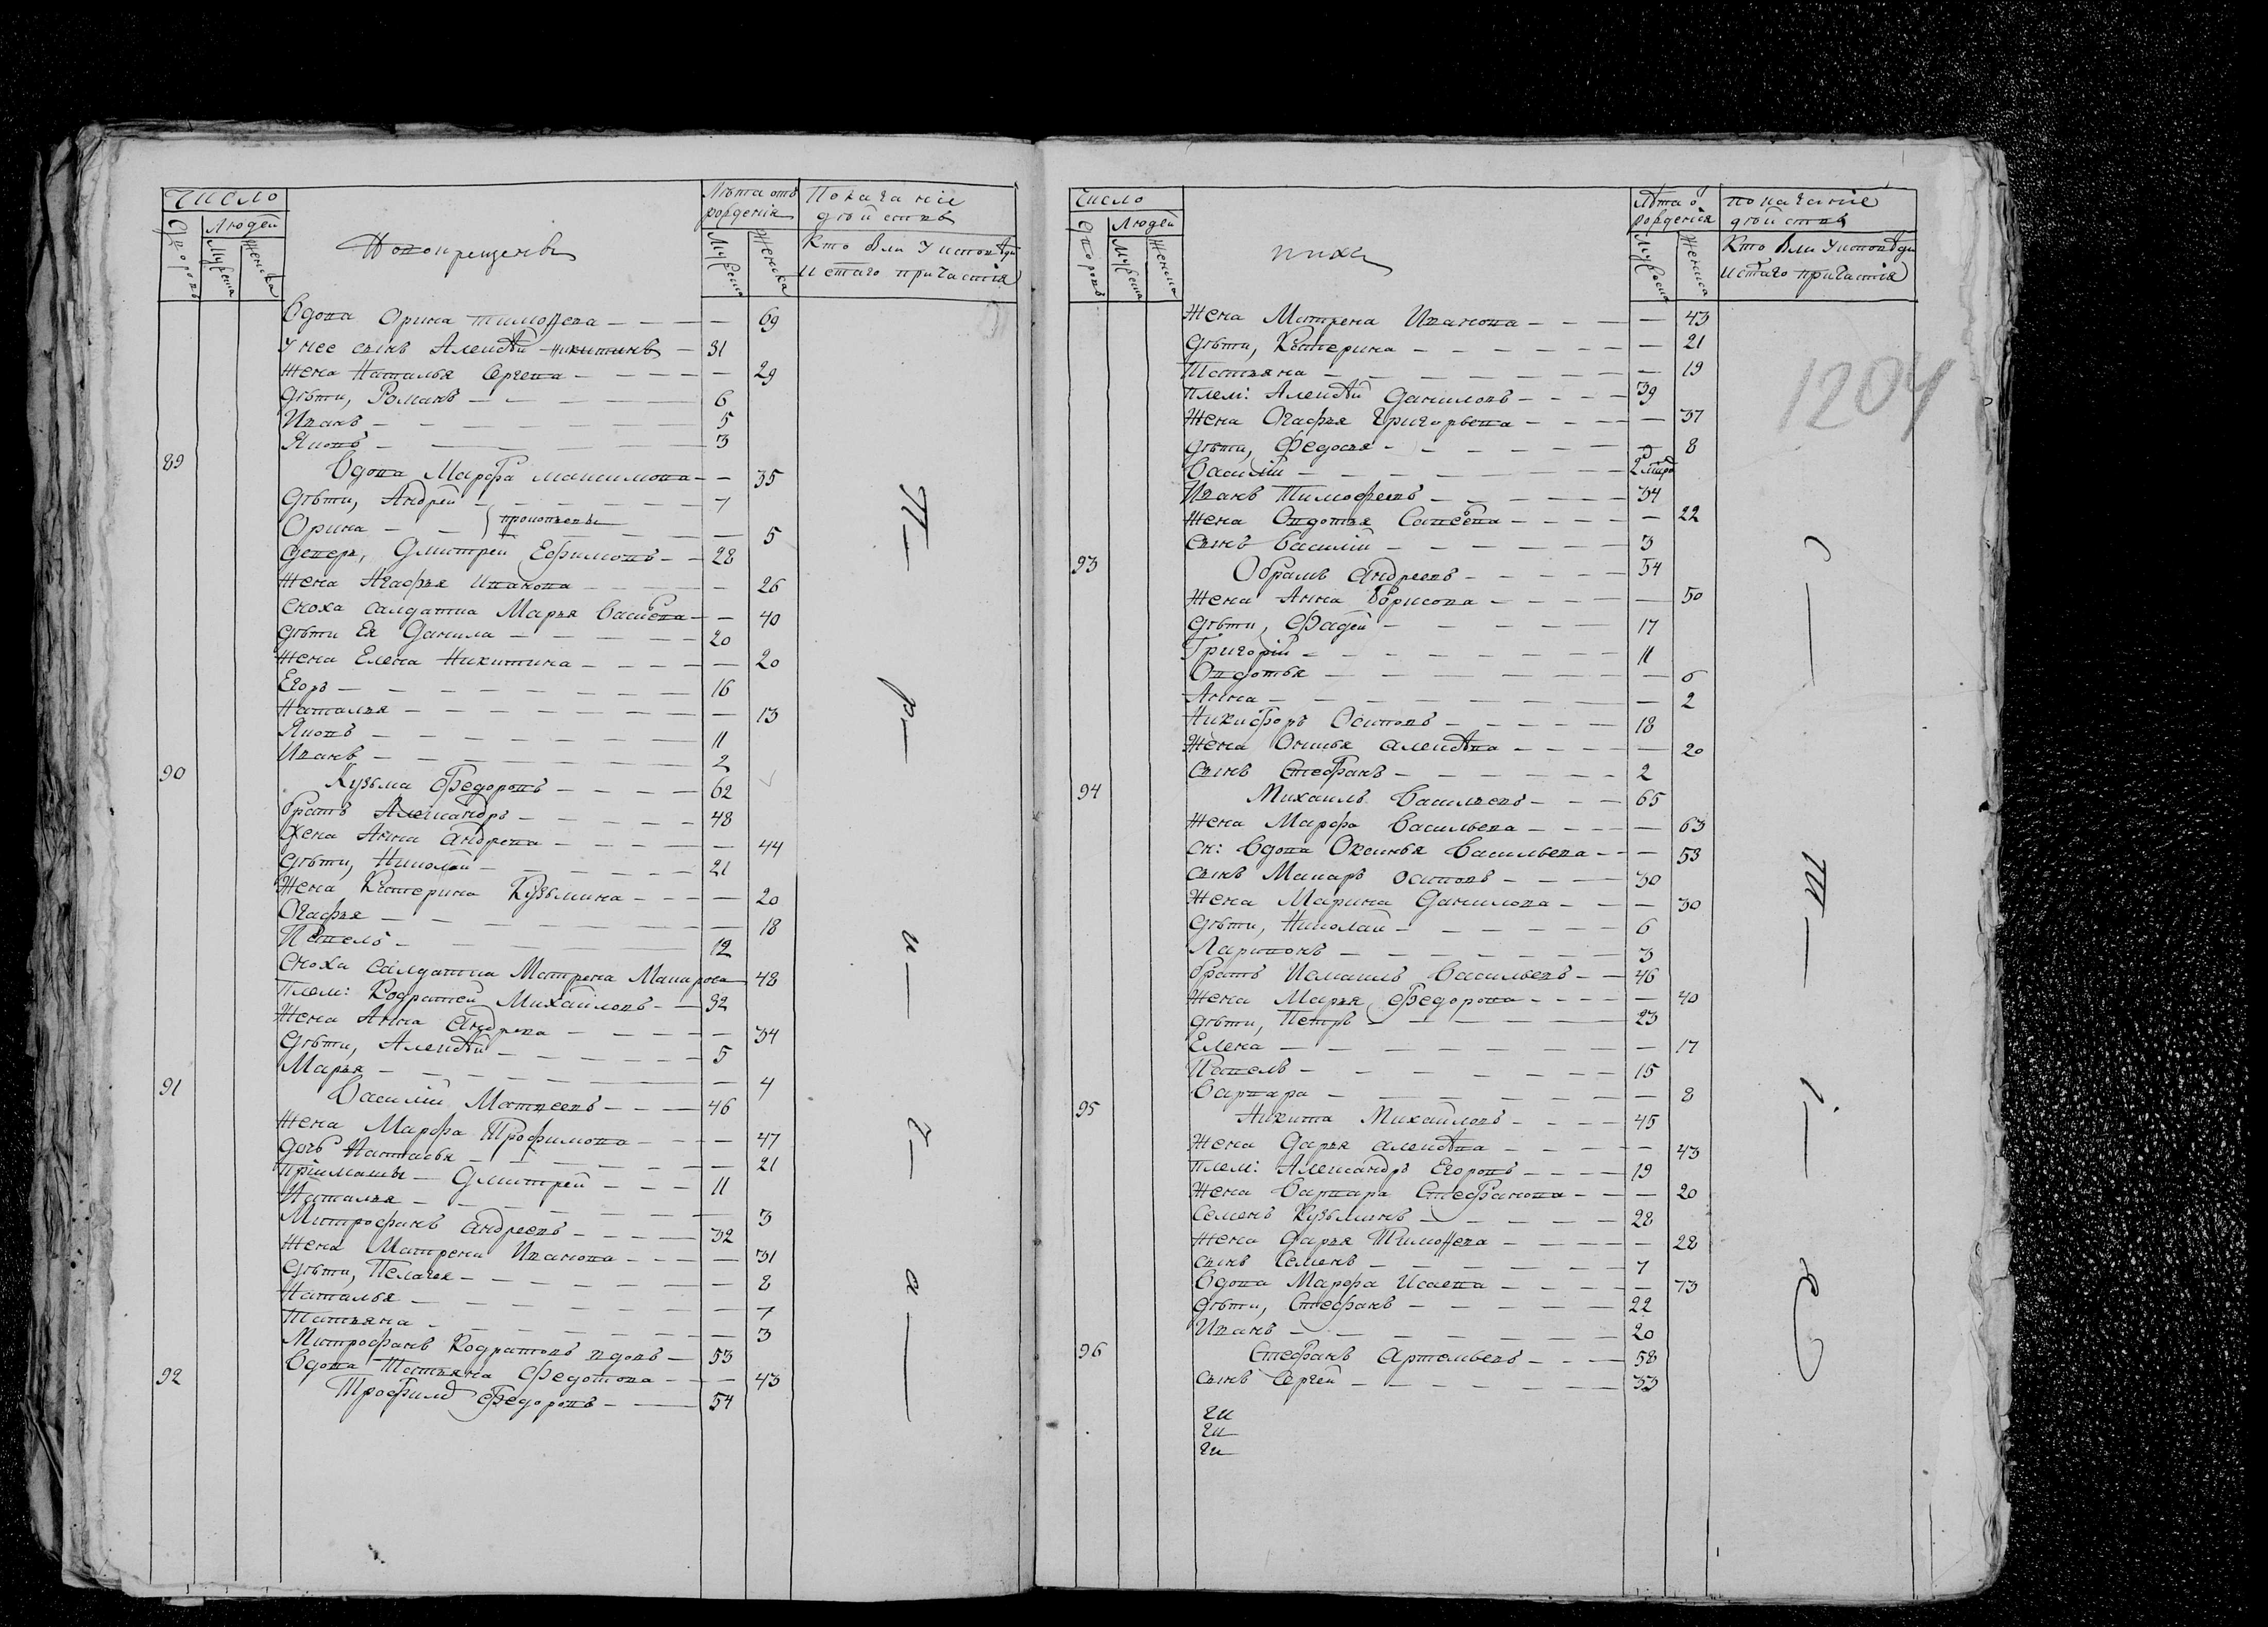 Число
Дворовъ
Людей
Мужеска
Женска
Новокрещенъ
Лѣта отъ рожденія
Мужеска
Женска
Показаніе действъ
Кто были у исповѣди
и стаго причастія
Вдова Орина Тимоѳева — — — 69
У нее сынъ Алексѣй Никитинъ — 31
Жена Наталья Сергева — — — — 29
Дѣти, Романъ — — — — 6
Иванъ — — — — 5
Яковъ — — — 3
89
Вдова Марфа Максимова — — 35
Дѣти, Андрей — — — — 7
Орина — — — — 5
Деверь, Дмитрей Ефимовъ — — 28
Жена Агафья Иванова — — — 26
Сноха салдатка Марья Васиева — — 40
Дѣти Ея Данила — — — — 20
Жена Елена Никитина — — — — 20
Егоръ — — — — 16
Наталья — — — — 13
Яковъ — — — — 11
Иванъ — — — — 2
90
Кузьма Федоровъ — — — — 62
братъ Александръ — — — — 48
Жена Анна Андрева — — — — 44
Дѣти, Николай — — — — 21
Жена Катерина Кузьмина — — — 20
Огафья — — — — 18
Павелъ — — — — 12
Сноха салдатка Матрена Макарова — 48
Плем: Кодратей Михайловъ — — 32
Жена Анна Андрева — — — 34
Дѣти, Алексѣй — — — — 5
Марья — — — — 4
91
Василій Матвеевъ — — — 46
Жена Марфа Трофимова — — — 47
Дочь Настасья — — — — 21
Пріимыши — Дмитрей — — — 11
Наталья — — — — 3
Митрофанъ Андреевъ — — — — 32
Жена Матрена Иванова — — — — 31
Дѣти, Пелагея — — — — 8
Наталья — — — — 7
Татьяна — — — — 3
Митрофанъ Кодратовъ вдовъ — 53
Вдова Татьяна Федотова — — — 43
92
Трофимъ Федоровъ — — — 54
П — р — и — ч — а —
Число
Дворовъ
Людей
Мужеска
Женска
Лѣта о рожденія
Мужеска
Женска
показаніе действъ
Кто были у исповѣди
и стаго причастія
1204
Жена Матрена Иванова — — — — 43
Дѣти, Катерина — — — — 21
Татьяна — — — — 19
Плем: Алексѣй Даниловъ — — — 39
Жена Огафья Григорьева — — — — 37
Дѣти, Федосья — — — — 8
Василій — — — — 2
Иванъ Тимофеевъ — — — — 34
Жена Овдотья Савеева — — — — 22
Сынъ Василій — — — — 3
93
Обрамъ Андреевъ — — — — 54
Жена Анна Борисова — — — — 50
Дѣти, Фадей — — — — 17
Григорій — — — — 11
Овдотья — — — — 6
Анна — — — — 2
Никифоръ Осиповъ — — — — 18
Жена Онисья Алексѣва — — — — 20
Сынъ Стефанъ — — — — 2
94
Михаилъ Васильевъ — — — 65
Жена Марфа Васильева — — — — 63
Сн: вдова Оксинья Васильева — — 53
Сынъ Макаръ Осиповъ — — — 30
Жена Марина Данилова — — — 30
Дѣти, Николай — — — — 6
Ларивонъ — — — — 3
братъ Исмаилъ Васильевъ — — 46
Жена Марья Федорова — — — — 40
Дѣти, Петръ — — — — 23
Елена — — — — 17
Павелъ — — — — 15
Варвара — — — — 8
95
Никита Михайловъ — — — — 45
Жена Дарья Алексѣва — — — — 43
Плем: Александръ Егоровъ — — — 19
Жена Варвара Стефанова — — — 20
Семенъ Кузьминъ — — — — 28
Жена Дарья Тимоѳева — — — — 28
Сынъ Семенъ — — — — 7
Вдова Марфа Исаева — — — — 73
Дѣти, Стефанъ — — — — 22
Иванъ — — — — 20
96
Стефанъ Артемьевъ — — — 58
Сынъ Сергей — — — — 33